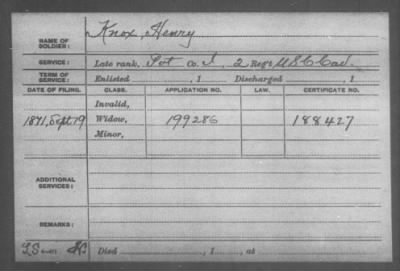 NAME OF SOLDIER: Knox, Henry
SERVICE: Late rank, Pvt Co. I, 2 Reg't U S C Cav.
TERM OF SERVICE: Enlisted , 1 Discharged , 1
DATE OF FILING. CLASS. APPLICATION NO. LAW. CERTIFICATE NO.
Invalid,
1871, Sept. 19 Widow, 199286 188427
Minor,
ADDITIONAL SERVICES:
REMARKS:
Died , 1 , at